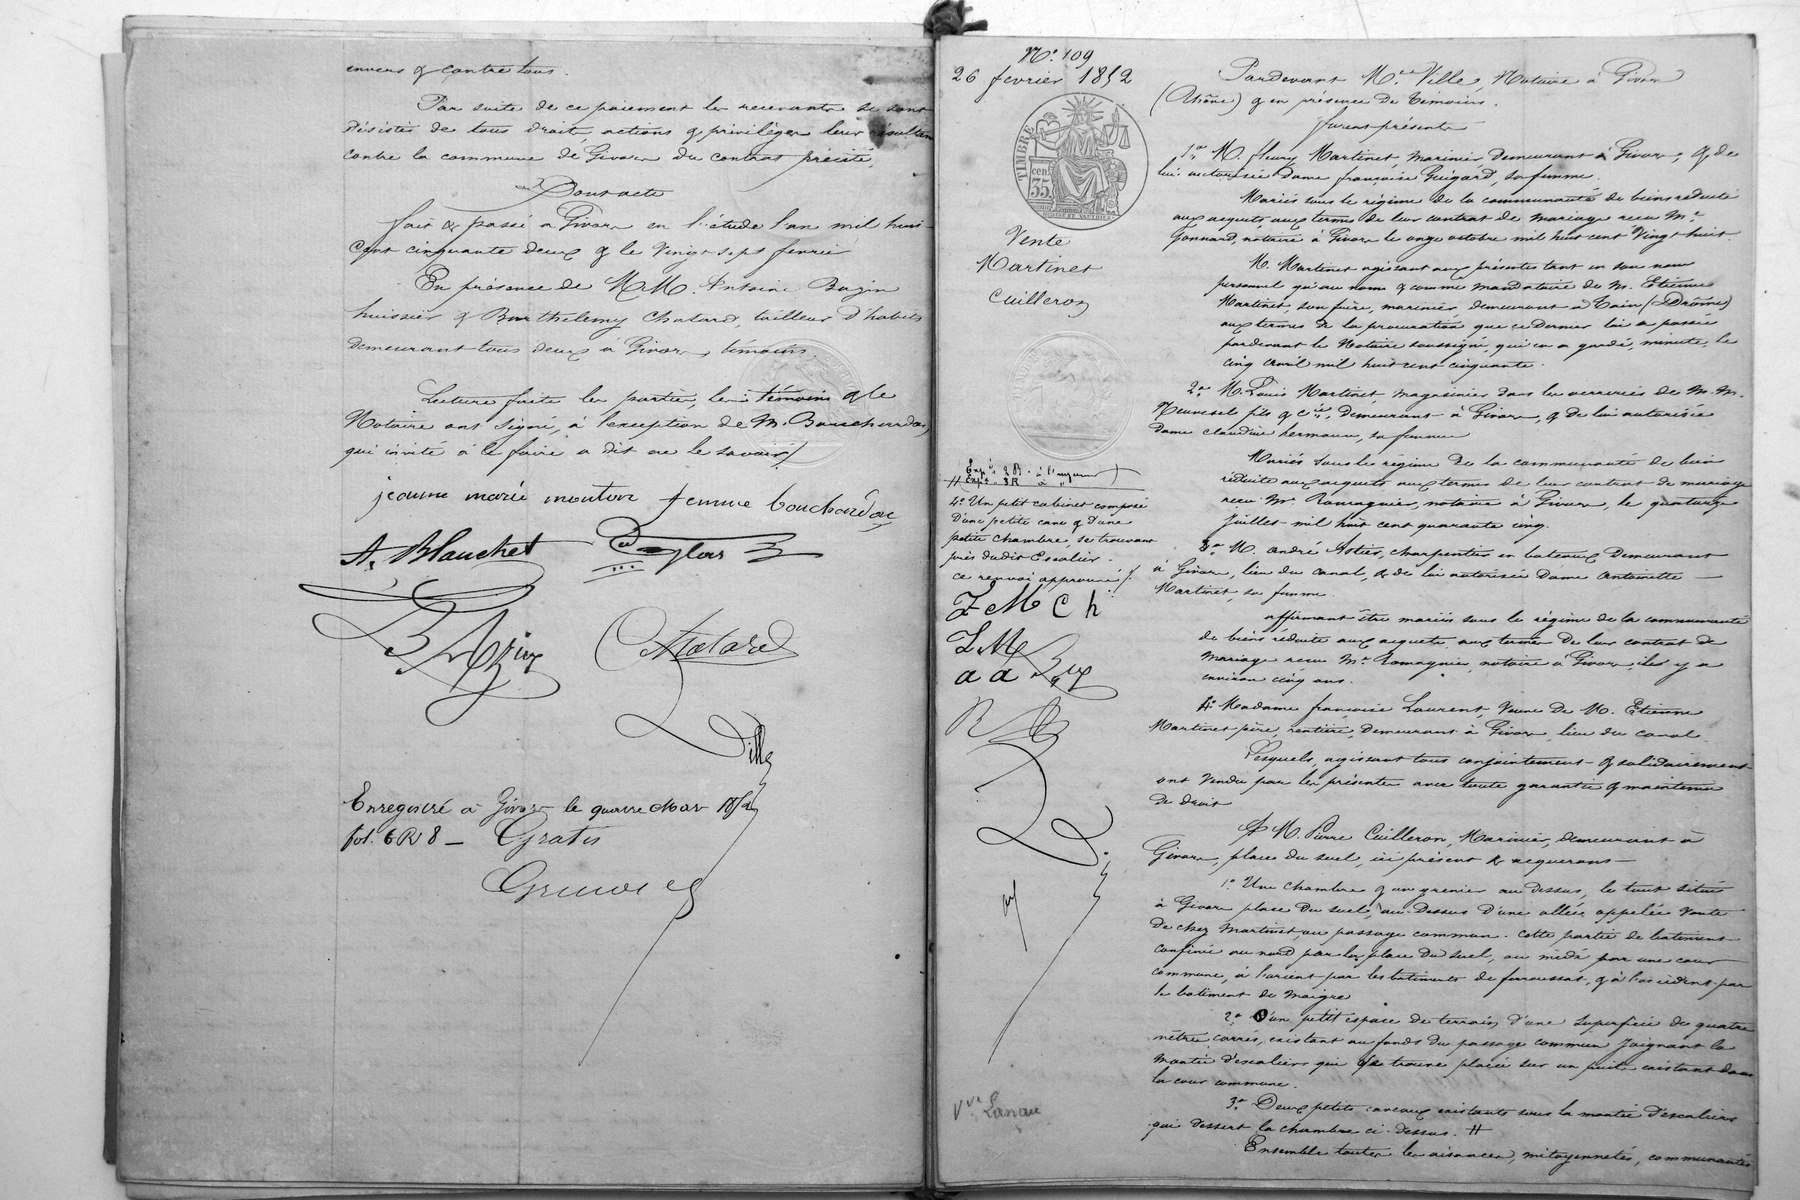 envers & contre tous.
Par suite de ce paiement les recevants se sont
désistés de tous droits, actions & privilèges leur résultant
contre la commune de Givors du contrat précité,
Dont acte
fait & passé à Givors en l'étude l'an mil huit
cent cinquante deux & le Vingt sept fevrier
En présence de M.M. Antoine Bazin
huissier & Barthelemy Chatard, tailleur d'habits
demeurant tous deux à Givors, témoins.
Lecture faite les parties, les témoins & le
Notaire ont signé, à l'exception de M. Bouchardon,
qui invité à le faire a dit ne le savoir
jeanne marie mouton femme bouchardon
A. Blanchet
Bazin Chatard
Ville
Enregistré à Givors le quatre Mars 1852
fol. 6 R 8 — Gratis
N.º 109
26 fevrier 1852
TIMBRE
35 cen
Vente
Martinet
Cuilleron
4º Un petit cabinet composé
d'une petite cave & d'une
petite chambre, se trouvant
près dudit Escalier.
ce renvoi approuvé
F M C h
L M
a a
Vve Lanau
Pardevant Me Ville, Notaire à Givors
(Rhône) & en présence de témoins.
furent présents
1º M. fleury Martinet, marinier, demeurant à Givors, & de
lui autorisée Dame françoise Guigard, sa femme.
Mariés sous le régime de la communauté de biens réduite
aux acquets, aux termes de leur contrat de mariage reçu Me
Gonnard, notaire à Givors le onze octobre mil huit cent Vingt huit.
M. Martinet agissant aux présentes tant en son nom
personnel qu'au nom & comme mandataire de M. Etienne
Martinet, son frère, marinier, demeurant à Tain (Drôme)
aux termes de la procuration que ce dernier lui a passée
pardevant le Notaire soussigné, qui en a gardé, minute, le
cinq avril mil huit cent cinquante.
2º M. Louis Martinet, magasinier dans les verreries de M.M.
Neuvesel fils & Cie, demeurant à Givors, & de lui autorisée
Dame claudine hermann, sa femme
Mariés sous le régime de la communauté de biens
réduite aux acquets aux termes de leur contrat de mariage
reçu Me Romagnier, notaire à Givors, le quatorze
Juillet mil huit cent quarante cinq.
3º M. andré Astier, charpentier en bateaux demeurant
à Givors, lieu du canal, & de lui autorisée Dame antoinette —
Martinet, sa femme.
affirmant être mariés sous le régime de la communauté
de biens réduite aux acquets aux termes de leur contrat de
mariage reçu Me Romagnier, notaire à Givors, il y a
environ cinq ans.
4º Madame françoise Laurent, Veuve de M. Etienne
Martinet père, rentière, demeurant à Givors, lieu du canal.
Lesquels, agissant tous conjointement & solidairement
ont Vendu par les présentes avec toute garantie & maintenue
de droit
A M. Pierre Cuilleron, Marinier, demeurant à
Givors, place du suel, ici présent & acquérant —
1º Une chambre & un grenier au dessus, le tout situé
à Givors place du suel, au-dessus d'une allée appelée Voute
de chez Martinet, au passage commun. cette partie de batiment
confinée au nord par la place du suel, au midi par une cour
commune, à l'orient par les batiments de farroussat, & à l'occident par
le batiment de Maigre
2º D'un petit espace de terrain d'une superficie de quatre
mètres carrés, existant au fonds du passage commun joignant la
montée d'escaliers qui se trouve placée sur un puits existant dans
la cour commune.
3º Deux petits caveaux existants sous la montée d'escaliers
qui dessert la chambre ci-dessus. #
Ensemble toutes les aisances, mitoyennetés, communautés